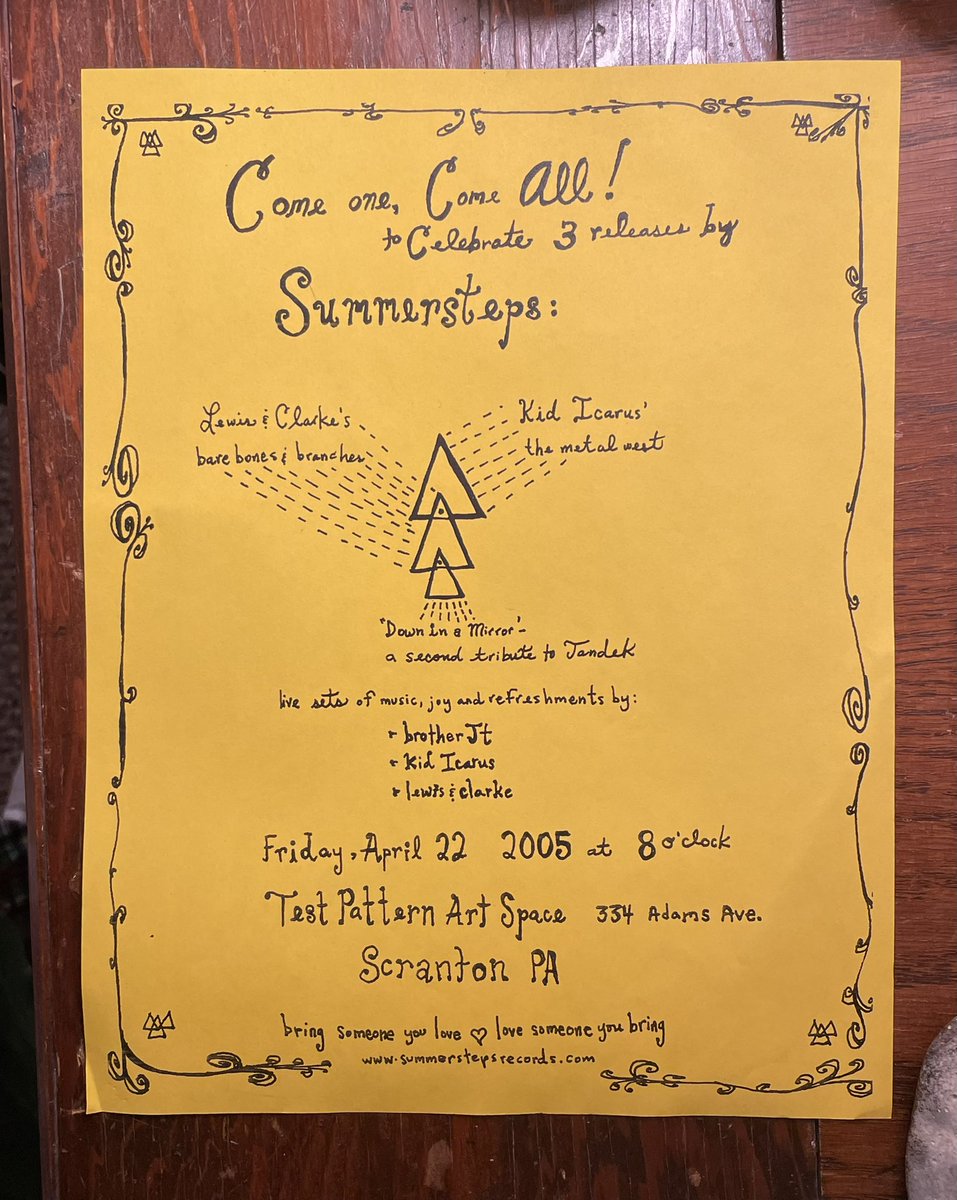 Come one, Come all!
to Celebrate 3 releases by
Summersteps:
Lewis & Clarke's
bare bones & branches
Kid Icarus'
the metal west
"Down in a Mirror"-
a second tribute to Jandek
live sets of music, joy and refreshments by:
brother Jt
Kid Icarus
lewis & clarke
Friday, April 22 2005 at 8 o'clock
Test Pattern Art Space 334 Adams Ave.
Scranton PA
bring someone you love ♡ love someone you bring
www.summerstepsrecords.com